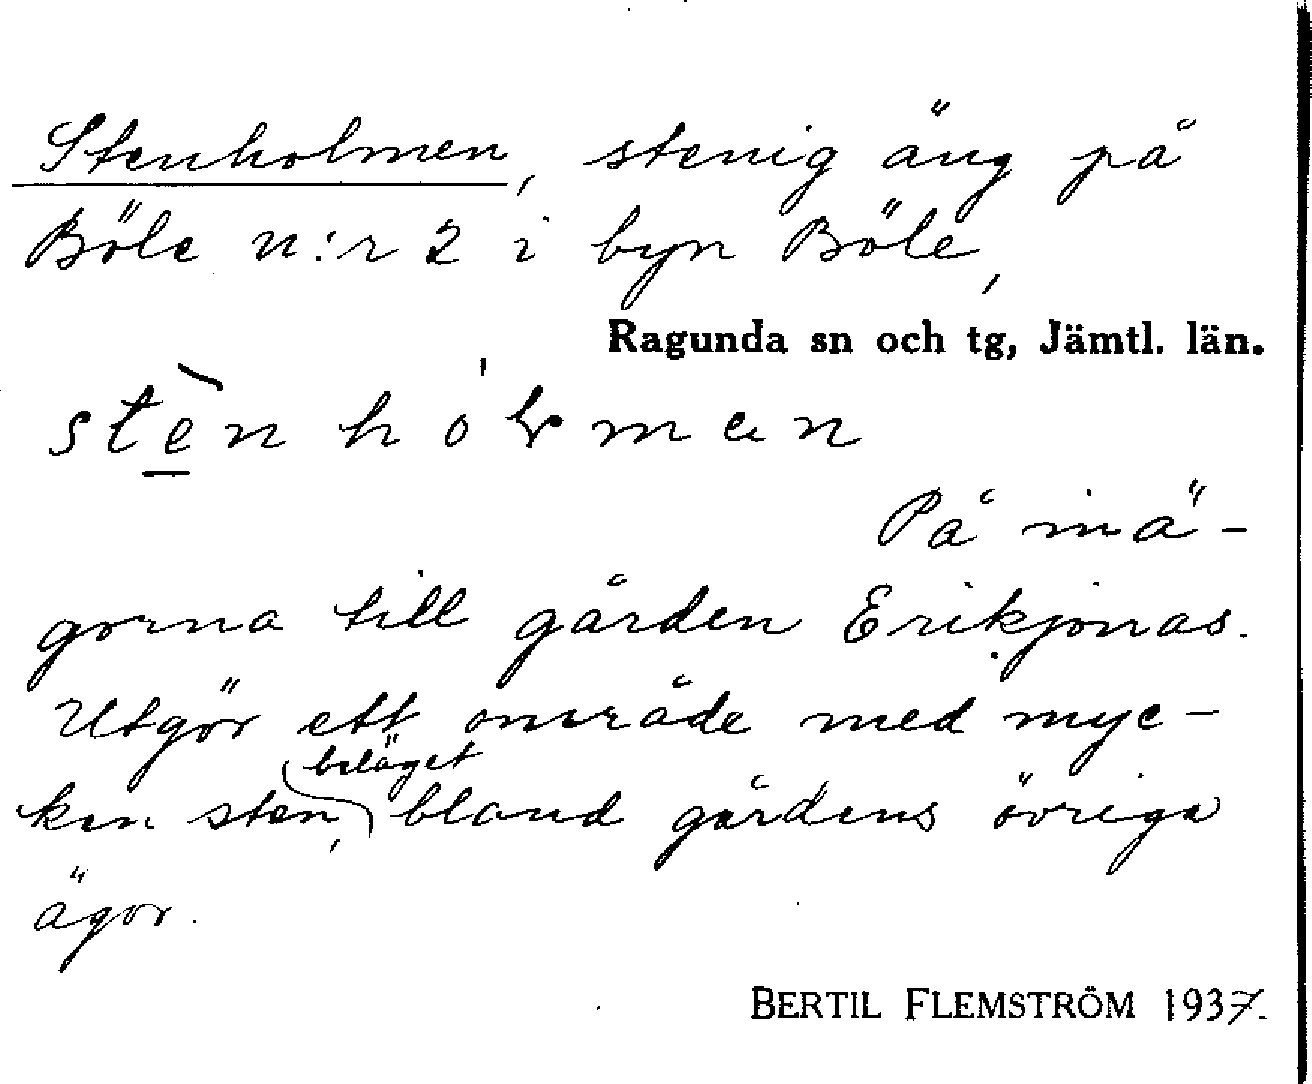 Stenholmen, stenig äng på
Böle n:r 2 i byn Böle,
Ragunda sn och tg, Jämtl. län.
På inä-
gorna till gården Erikjonas.
Utgör ett område med myc-
ken sten, beläget bland gårdens övriga
ägor.
BERTIL FLEMSTRÖM 1937.